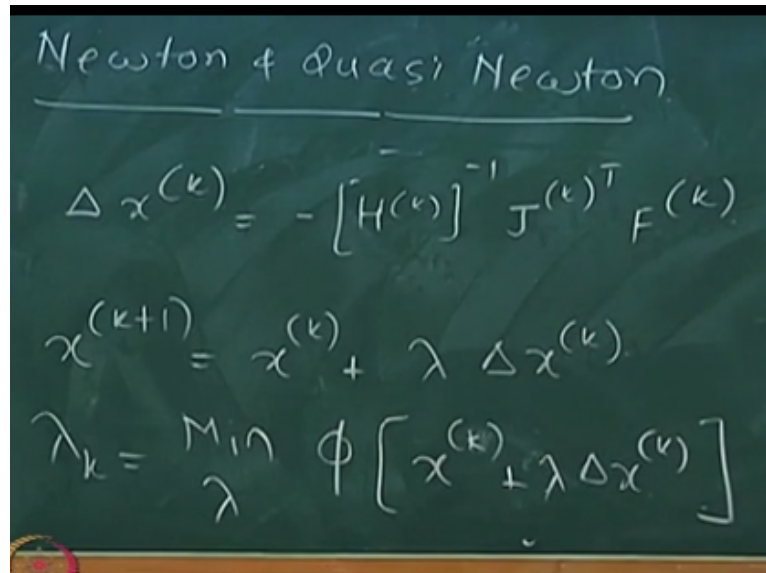 Newton & Quasi Newton
Δx^(k) = - [H^(k)]^-1 J^(k)^T F^(k)
x^(k+1) = x^(k) + λ Δx^(k)
λ_k = Min_λ Φ [x^(k) + λ Δx^(k)]